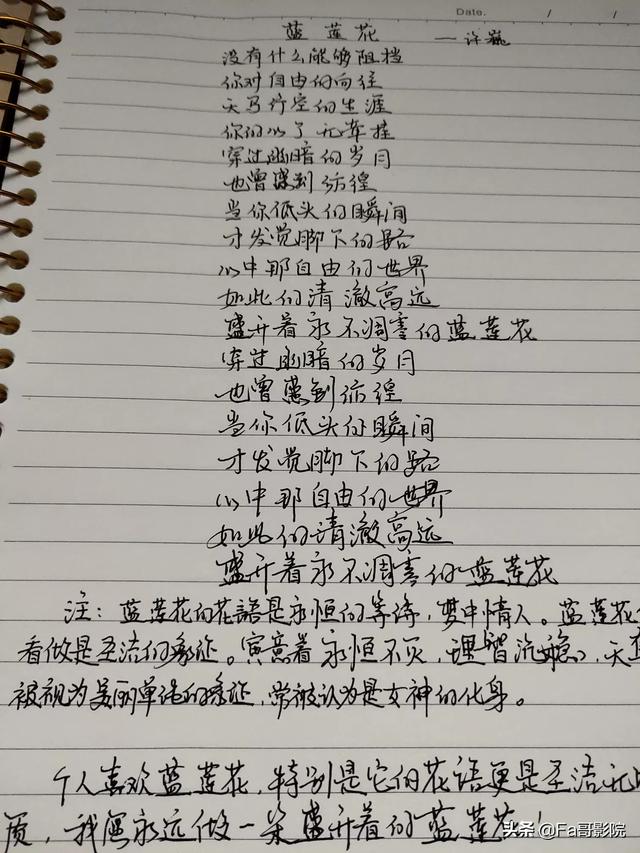 Date. / /
蓝莲花 —许巍
没有什么能够阻挡
你对自由的向往
天马行空的生涯
你的心了无牵挂
穿过幽暗的岁月
也曾感到彷徨
当你低头的瞬间
才发觉脚下的路
心中那自由的世界
如此的清澈高远
盛开着永不凋零的蓝莲花
穿过幽暗的岁月
也曾感到彷徨
当你低头的瞬间
才发觉脚下的路
心中那自由的世界
如此的清澈高远
盛开着永不凋零的蓝莲花
注：蓝莲花的花語是永恒的等待，梦中情人。蓝莲花
看做是圣洁的象征。寓意着永恒不灭，理智沉稳，天
被视为美丽单纯的象征，常被认为是女神的化身。
个人喜欢蓝莲花，特别是它的花语更是圣洁无
质，我愿永远做一朵盛开着的蓝莲花！
头条 @Fa哥影院